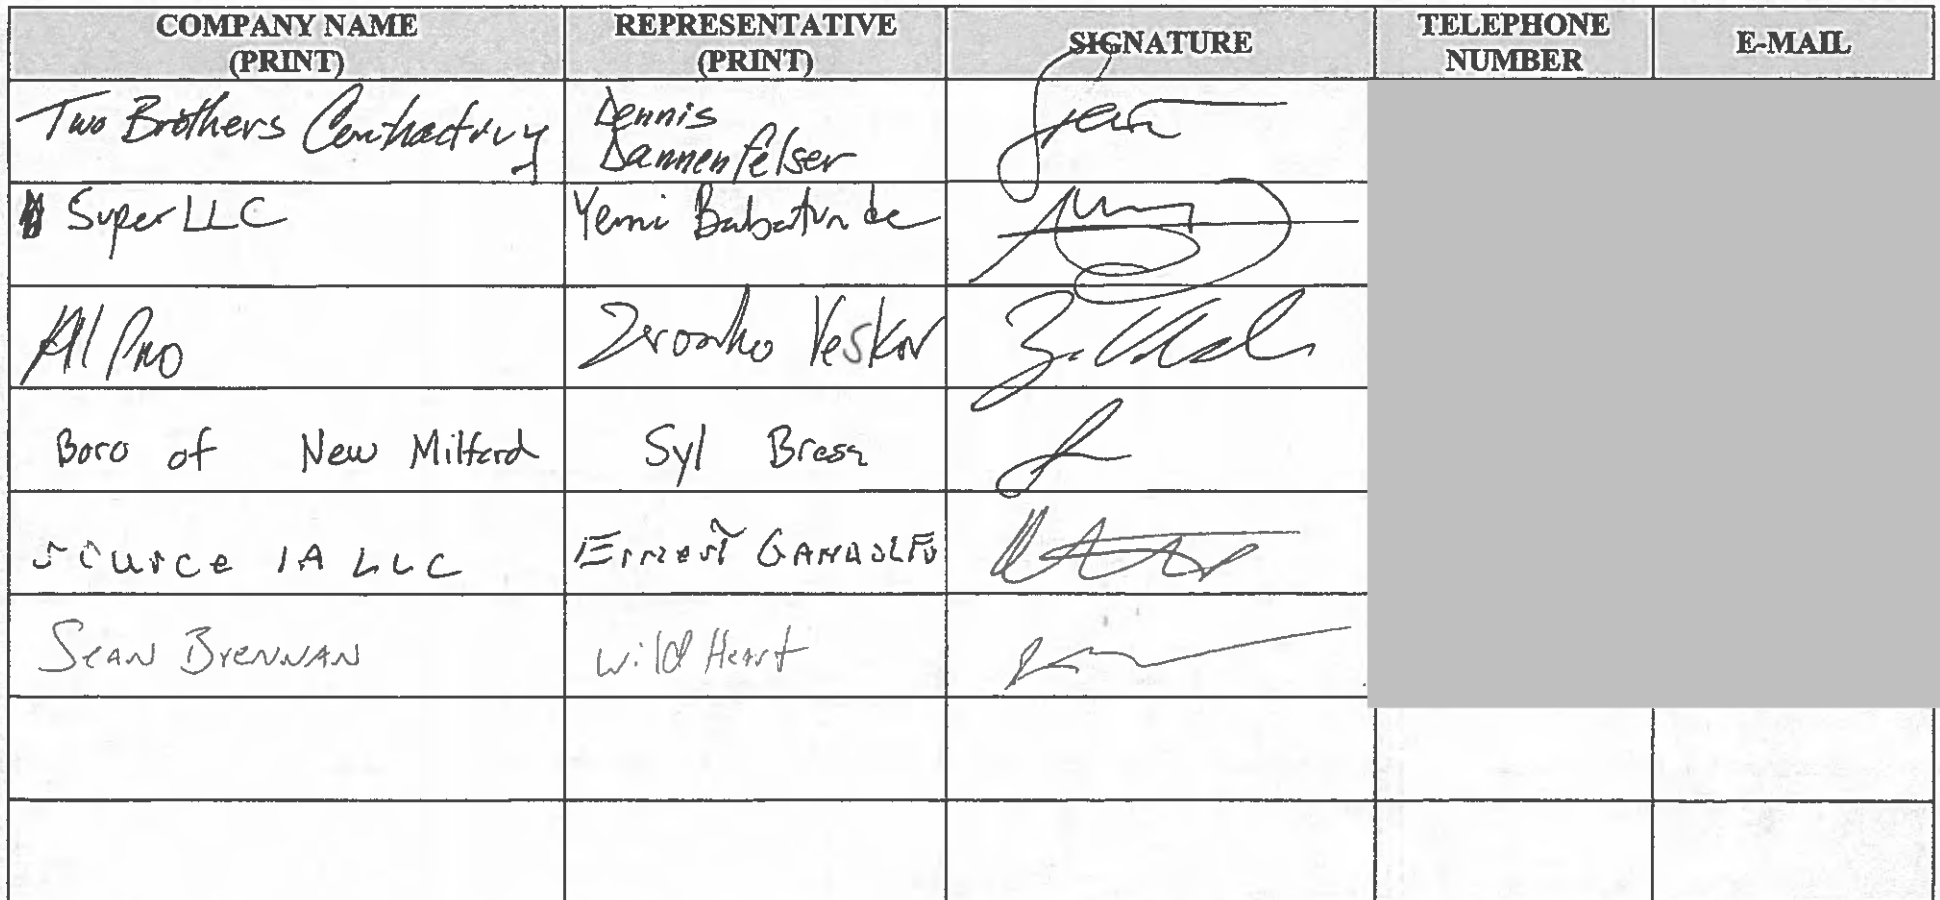 COMPANY NAME
(PRINT)
REPRESENTATIVE
(PRINT)
SIGNATURE
TELEPHONE
NUMBER
E-MAIL
Two Brothers Contracting
Dennis
Dannenfelser
Super LLC
Yemi Babatunde
All Pro
Veskov
Boro of New Milford
Syl Bresa
Source IA LLC
Ernest GANDOLFO
SEAN BrENNAN
Wild Heart